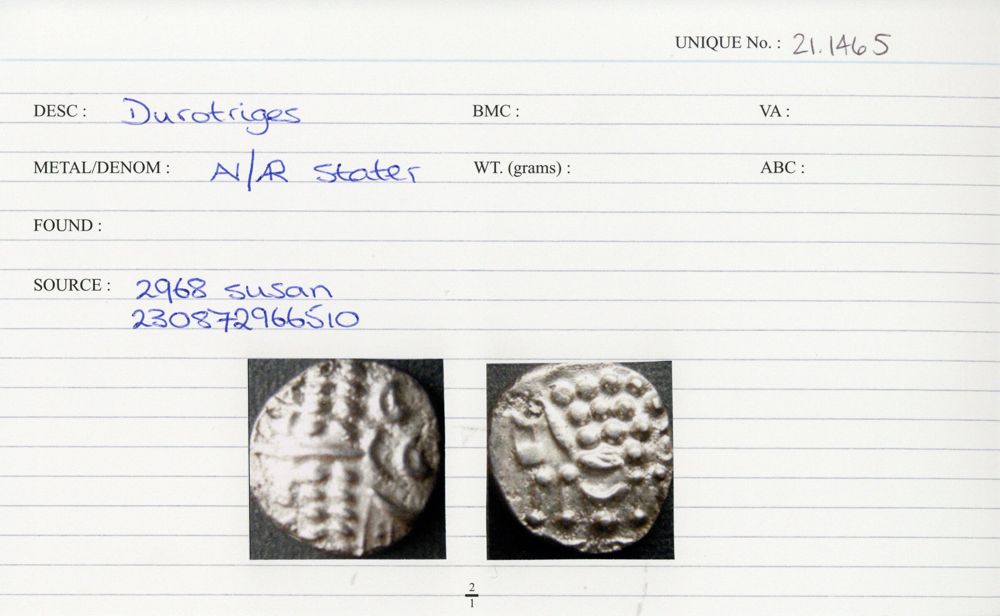 UNIQUE No. : 21.1465
DESC : Durotriges BMC : VA :
METAL/DENOM : AV/AR Stater WT. (grams) : ABC :
FOUND :
SOURCE : 2968 susan
230872966510
2
1